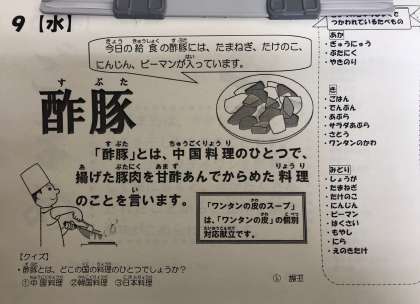 9【水】
今日の給食の酢豚には、たまねぎ、たけのこ、
にんじん、ピーマンが入っています。
酢豚
「酢豚」とは、中国料理のひとつで、
揚げた豚肉を甘酢あんでからめた料理
のことを言います。
「ワンタンの皮のスープ」
は、「ワンタンの皮」の個別
対応献立です。
【クイズ】
・酢豚とは、どこの国の料理のひとつでしょうか?
①中国料理 ②韓国料理 ③日本料理
つかわれているたべもの
あか
ぎゅうにゅう
ぶたにく
やきのり
き
ごはん
でんぷん
あぶら
サラダあぶら
さとう
ワンタンのかわ
みどり
しょうが
たまねぎ
たけのこ
にんじん
ピーマン
はくさい
もやし
にら
えのきたけ